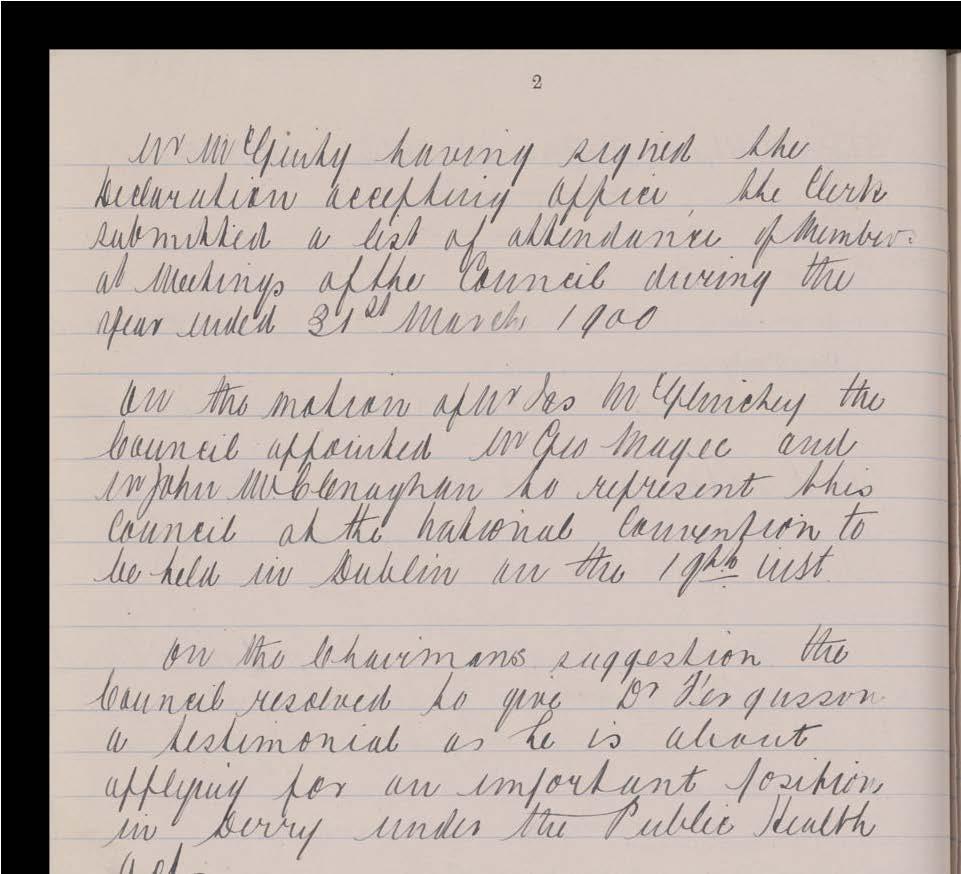 2
Mr McGinty having signed the
Declaration accepting office, the Clerk
submitted a list of attendance of Members
at Meetings of the Council during the
year ended 31st March 1900
On the motion of Mr Jas McGlinchey the
Council appointed Mr Geo Magee and
Mr John McClenaghan to represent this
Council at the National Convention to
be held in Dublin on the 19th inst.
On the Chairmans suggestion the
Council resolved to give Dr Fergusson
a testimonial as he is about
applying for an important position
in Derry under the Public Health
Act